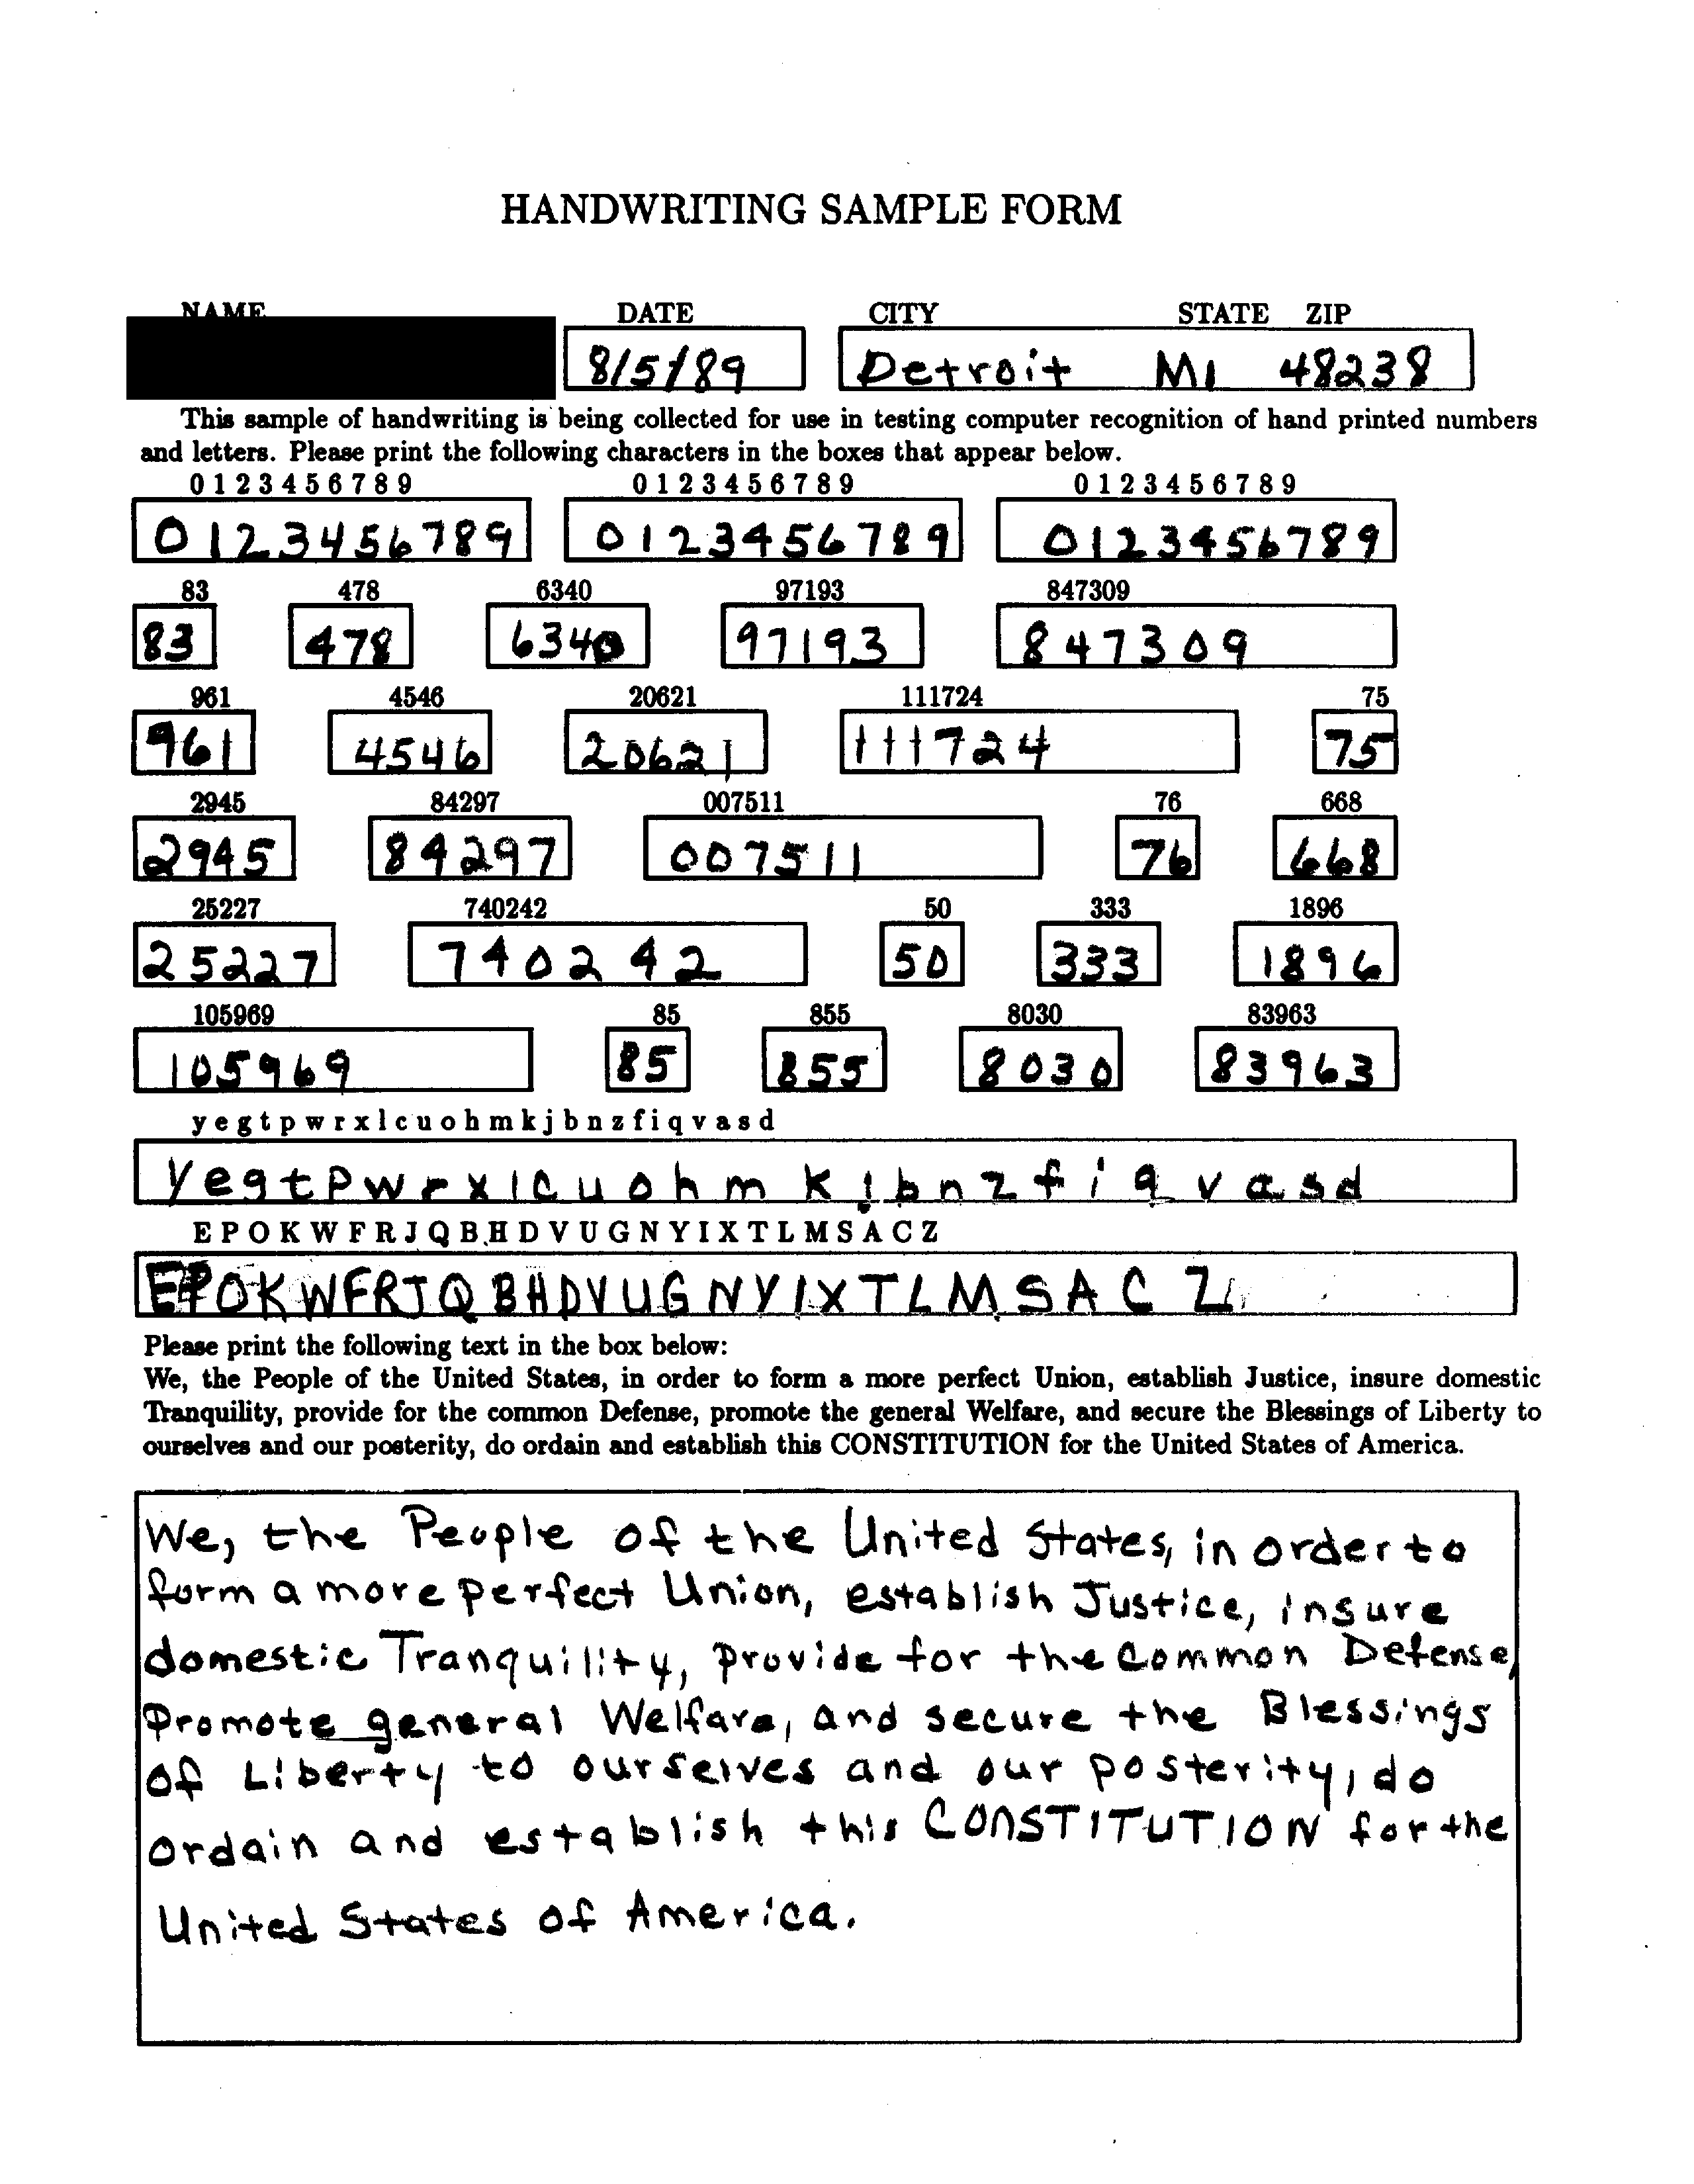 HANDWRITING SAMPLE FORM
NAME DATE CITY STATE ZIP
8/5/89 Detroit MI 48238
This sample of handwriting is being collected for use in testing computer recognition of hand printed numbers
and letters. Please print the following characters in the boxes that appear below.
0 1 2 3 4 5 6 7 8 9 0 1 2 3 4 5 6 7 8 9 0 1 2 3 4 5 6 7 8 9
0123456789 0123456789 0123456789
83 478 6340 97193 847309
83 478 6340 97193 847309
961 4546 20621 111724 75
961 4546 20621 111724 75
2945 84297 007511 76 668
2945 84297 007511 76 668
25227 740242 50 333 1896
25227 740242 50 333 1896
105969 85 855 8030 83963
105969 85 855 8030 83963
y e g t p w r x l c u o h m k j b n z f i q v a s d
y e g t p w r x l c u o h m k j b n z f i q v a s d
E P O K W F R J Q B H D V U G N Y I X T L M S A C Z
E P O K W F R J Q B H D V U G N Y I X T L M S A C Z
Please print the following text in the box below:
We, the People of the United States, in order to form a more perfect Union, establish Justice, insure domestic
Tranquility, provide for the common Defense, promote the general Welfare, and secure the Blessings of Liberty to
ourselves and our posterity, do ordain and establish this CONSTITUTION for the United States of America.
We, the People of the United States, in order to
form a more perfect Union, establish Justice, insure
domestic Tranquility, provide for the common Defense,
promote general Welfare, and secure the Blessings
of Liberty to ourselves and our posterity, do
ordain and establish this CONSTITUTION for the
United States of America.